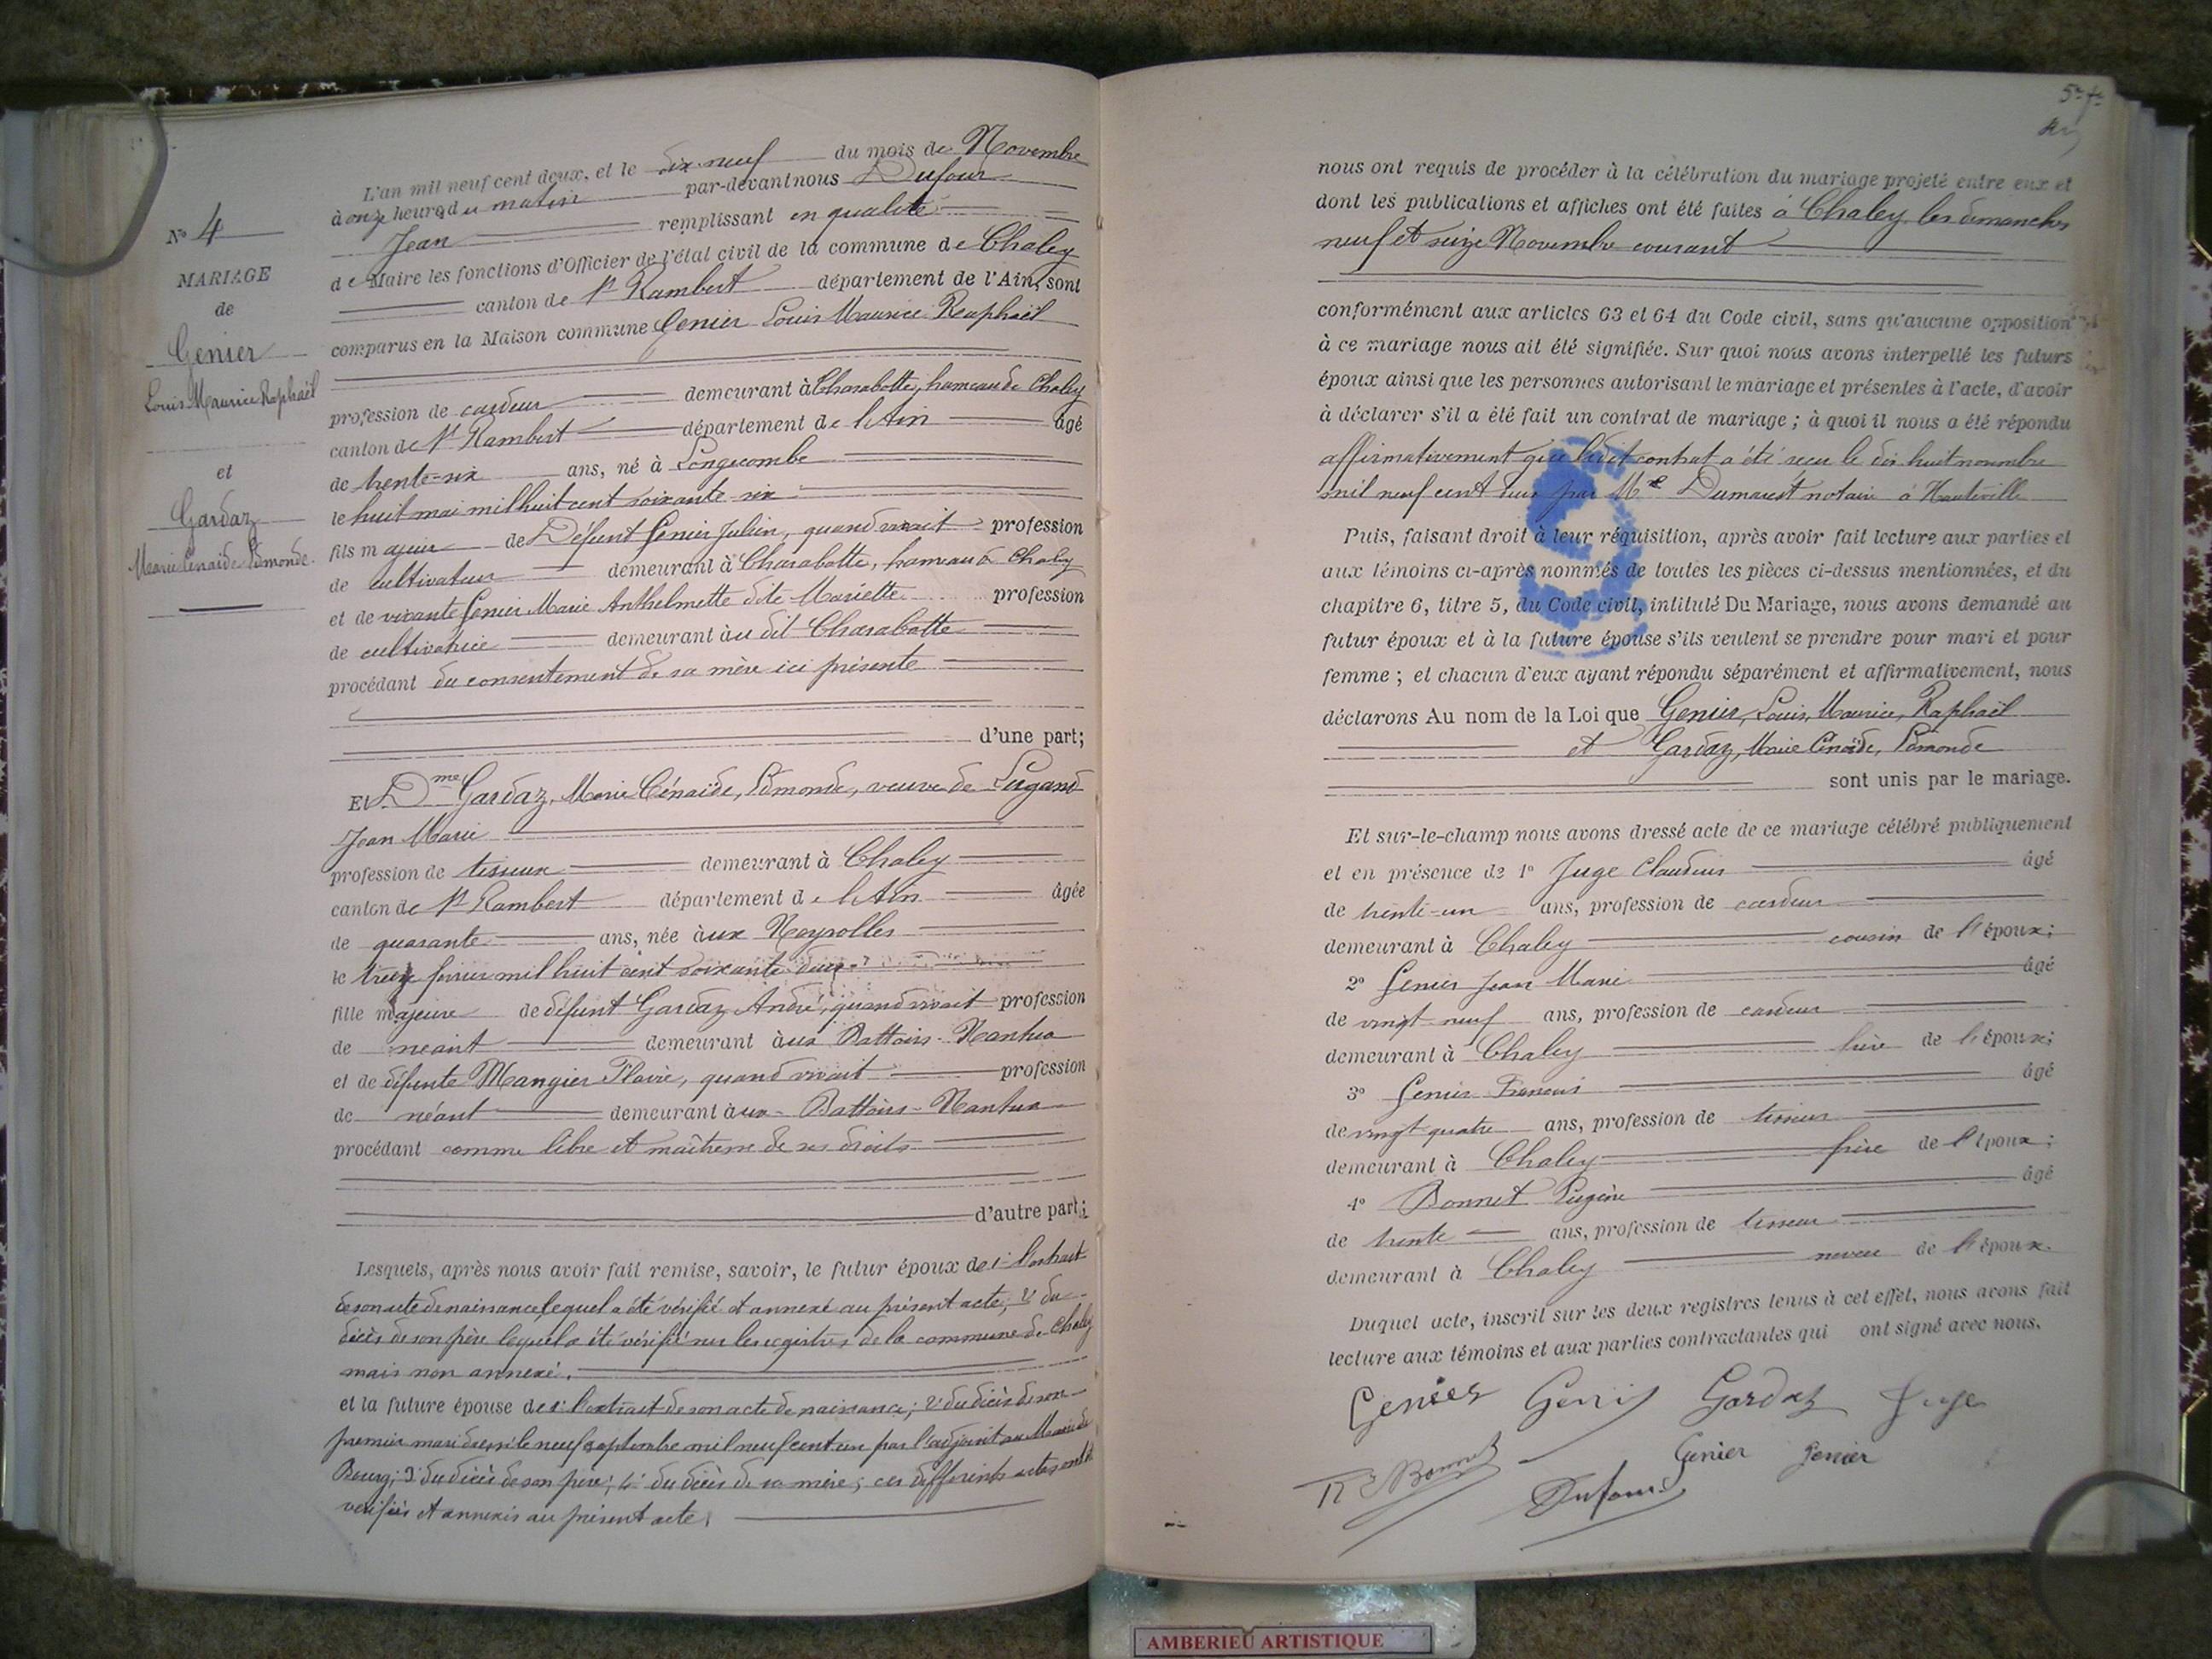 N° 4
MARIAGE
de
Genier
Louis Maurice Raphaël
et
Gardaz
Marie Cénaïde Edmonde.
L'an mil neuf cent deux, et le dix-neuf du mois de Novembre
à onze heures du matin par-devant nous Dufour
Jean remplissant en qualité
de Maire les fonctions d'Officier de l'état civil de la commune de Chaley
canton de St Rambert département de l'Ain, sont
comparus en la Maison commune Genier Louis Maurice Raphaël
profession de cardeur demeurant à Charabotte, hameau de Chaley
canton de St Rambert département de l'Ain âgé
de trente-six ans, né à Longecombe
le huit mai mil huit cent soixante-six
fils majeur de Défunt Genier Julien, quand vivait profession
de cultivateur demeurant à Charabotte, hameau de Chaley
et de vivante Genier Marie Anthelmette dite Mariette profession
de cultivatrice demeurant au dit Charabotte
procédant du consentement de sa mère ici présente
d'une part;
Et Dme Gardaz, Marie Cénaïde, Edmonde, veuve de Lugand
Jean Marie
profession de tisseur demeurant à Chaley
canton de St Rambert département de l'Ain âgée
de quarante ans, née aux Neyrolles
le treize février mil huit cent soixante deux
fille majeure de défunt Gardaz André, quand vivait profession
de néant demeurant aux Battoirs-Nantua
et de défunte Mangier Flavie, quand vivait profession
de néant demeurant aux Battoirs-Nantua
procédant comme libre et maîtresse de ses droits
d'autre part;
Lesquels, après nous avoir fait remise, savoir, le futur époux de 1° l'extrait
de son acte de naissance lequel a été vérifié et annexé au présent acte; 2° du
décès de son père lequel a été vérifié sur les registres de la commune de Chaley
mais non annexé.
et la future épouse de 1° l'extrait de son acte de naissance; 2° du décès de son
premier mari dressé le neuf septembre mil neuf cent un par l'adjoint au Maire de
Bourg; 3° du décès de son père; 4° du décès de sa mère; ces différents actes ont été
vérifiés et annexés au présent acte.
nous ont requis de procéder à la célébration du mariage projeté entre eux et
dont les publications et affiches ont été faites à Chaley les dimanches
neuf et seize Novembre courant
conformément aux articles 63 et 64 du Code civil, sans qu'aucune opposition
à ce mariage nous ait été signifiée. Sur quoi nous avons interpellé les futurs
époux ainsi que les personnes autorisant le mariage et présentes à l'acte, d'avoir
à déclarer s'il a été fait un contrat de mariage; à quoi il nous a été répondu
affirmativement que ledit contrat a été reçu le dix huit novembre
mil neuf cent deux par Me Dumarest notaire à Hauteville
Puis, faisant droit à leur réquisition, après avoir fait lecture aux parties et
aux témoins ci-après nommés de toutes les pièces ci-dessus mentionnées, et du
chapitre 6, titre 5, du Code civil, intitulé Du Mariage, nous avons demandé au
futur époux et à la future épouse s'ils veulent se prendre pour mari et pour
femme; et chacun d'eux ayant répondu séparément et affirmativement, nous
déclarons Au nom de la Loi que Genier, Louis, Maurice, Raphaël
et Gardaz, Marie Cénaïde, Edmonde
sont unis par le mariage.
Et sur-le-champ nous avons dressé acte de ce mariage célébré publiquement
et en présence de 1° Juge Claudius âgé
de trente-un ans, profession de cardeur
demeurant à Chaley cousin de l'époux;
2° Genier Jean Marie âgé
de vingt neuf ans, profession de cardeur
demeurant à Chaley frère de l'époux;
3° Genier François âgé
de vingt quatre ans, profession de tisseur
demeurant à Chaley frère de l'époux;
4° Bonnet Eugène âgé
de trente ans, profession de tisseur
demeurant à Chaley neveu de l'époux.
Duquel acte, inscrit sur les deux registres tenus à cet effet, nous avons fait
lecture aux témoins et aux parties contractantes qui ont signé avec nous.
Genier Gardaz Juge
Bonnet Genier Genier
Dufour
AMBERIEU ARTISTIQUE